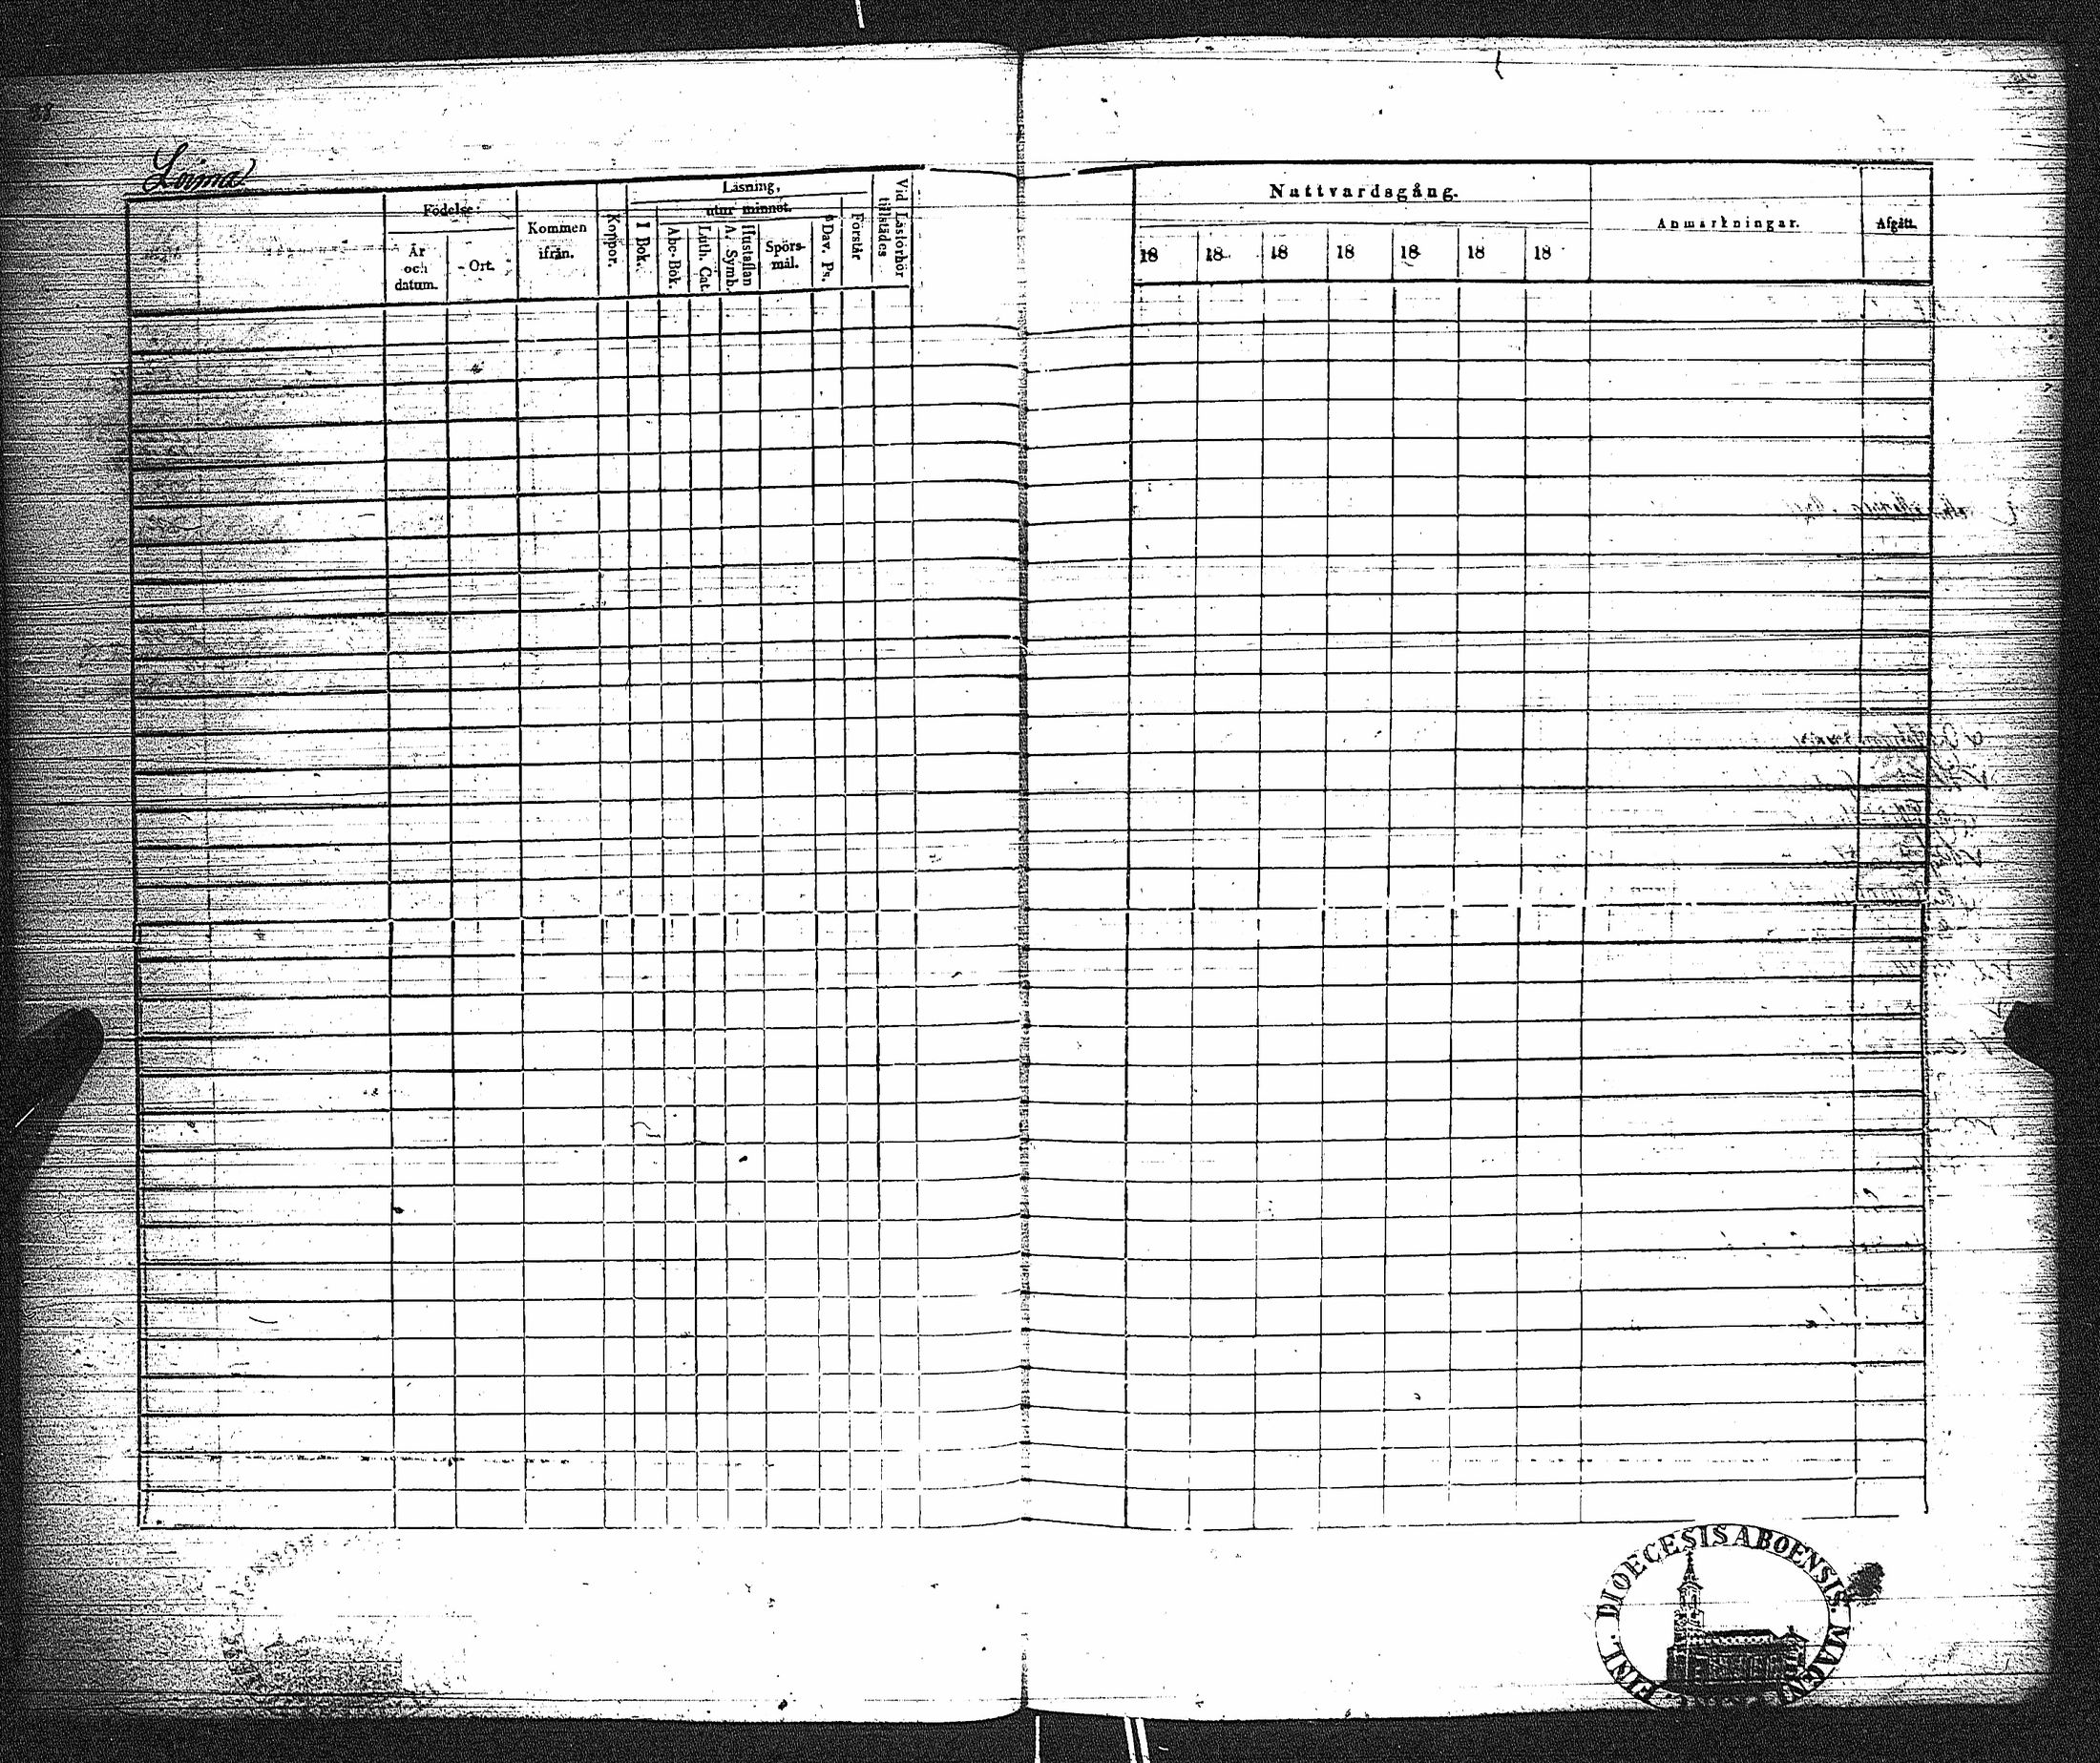 38
Loima
Födelse-
År
och
datum.
Ort.
Kommen
ifrån.
Koppor.
Läsning,
utur minnet.
I Bok.
Abc-Bok.
Luth. Cat.
Hustaflan
A. Symb.
Spörs-
mål.
Dav. Ps.
Förstår
Vid Läsförhör
tillstädes
Nattvardsgång.
18 18 18 18 18 18 18
Anmärkningar.
Afgått.
FINL. DIOECESIS ABOENSIS. MAGNI